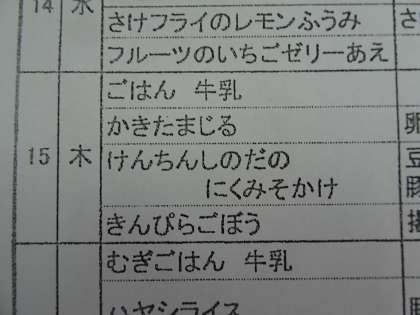 14 水
さけフライのレモンふうみ さ
フルーツのいちごゼリーあえ
ごはん 牛乳
かきたまじる 卵
15 木 けんちんしのだの 豆
にくみそかけ 豚
きんぴらごぼう
むぎごはん 牛乳
ハヤシライス